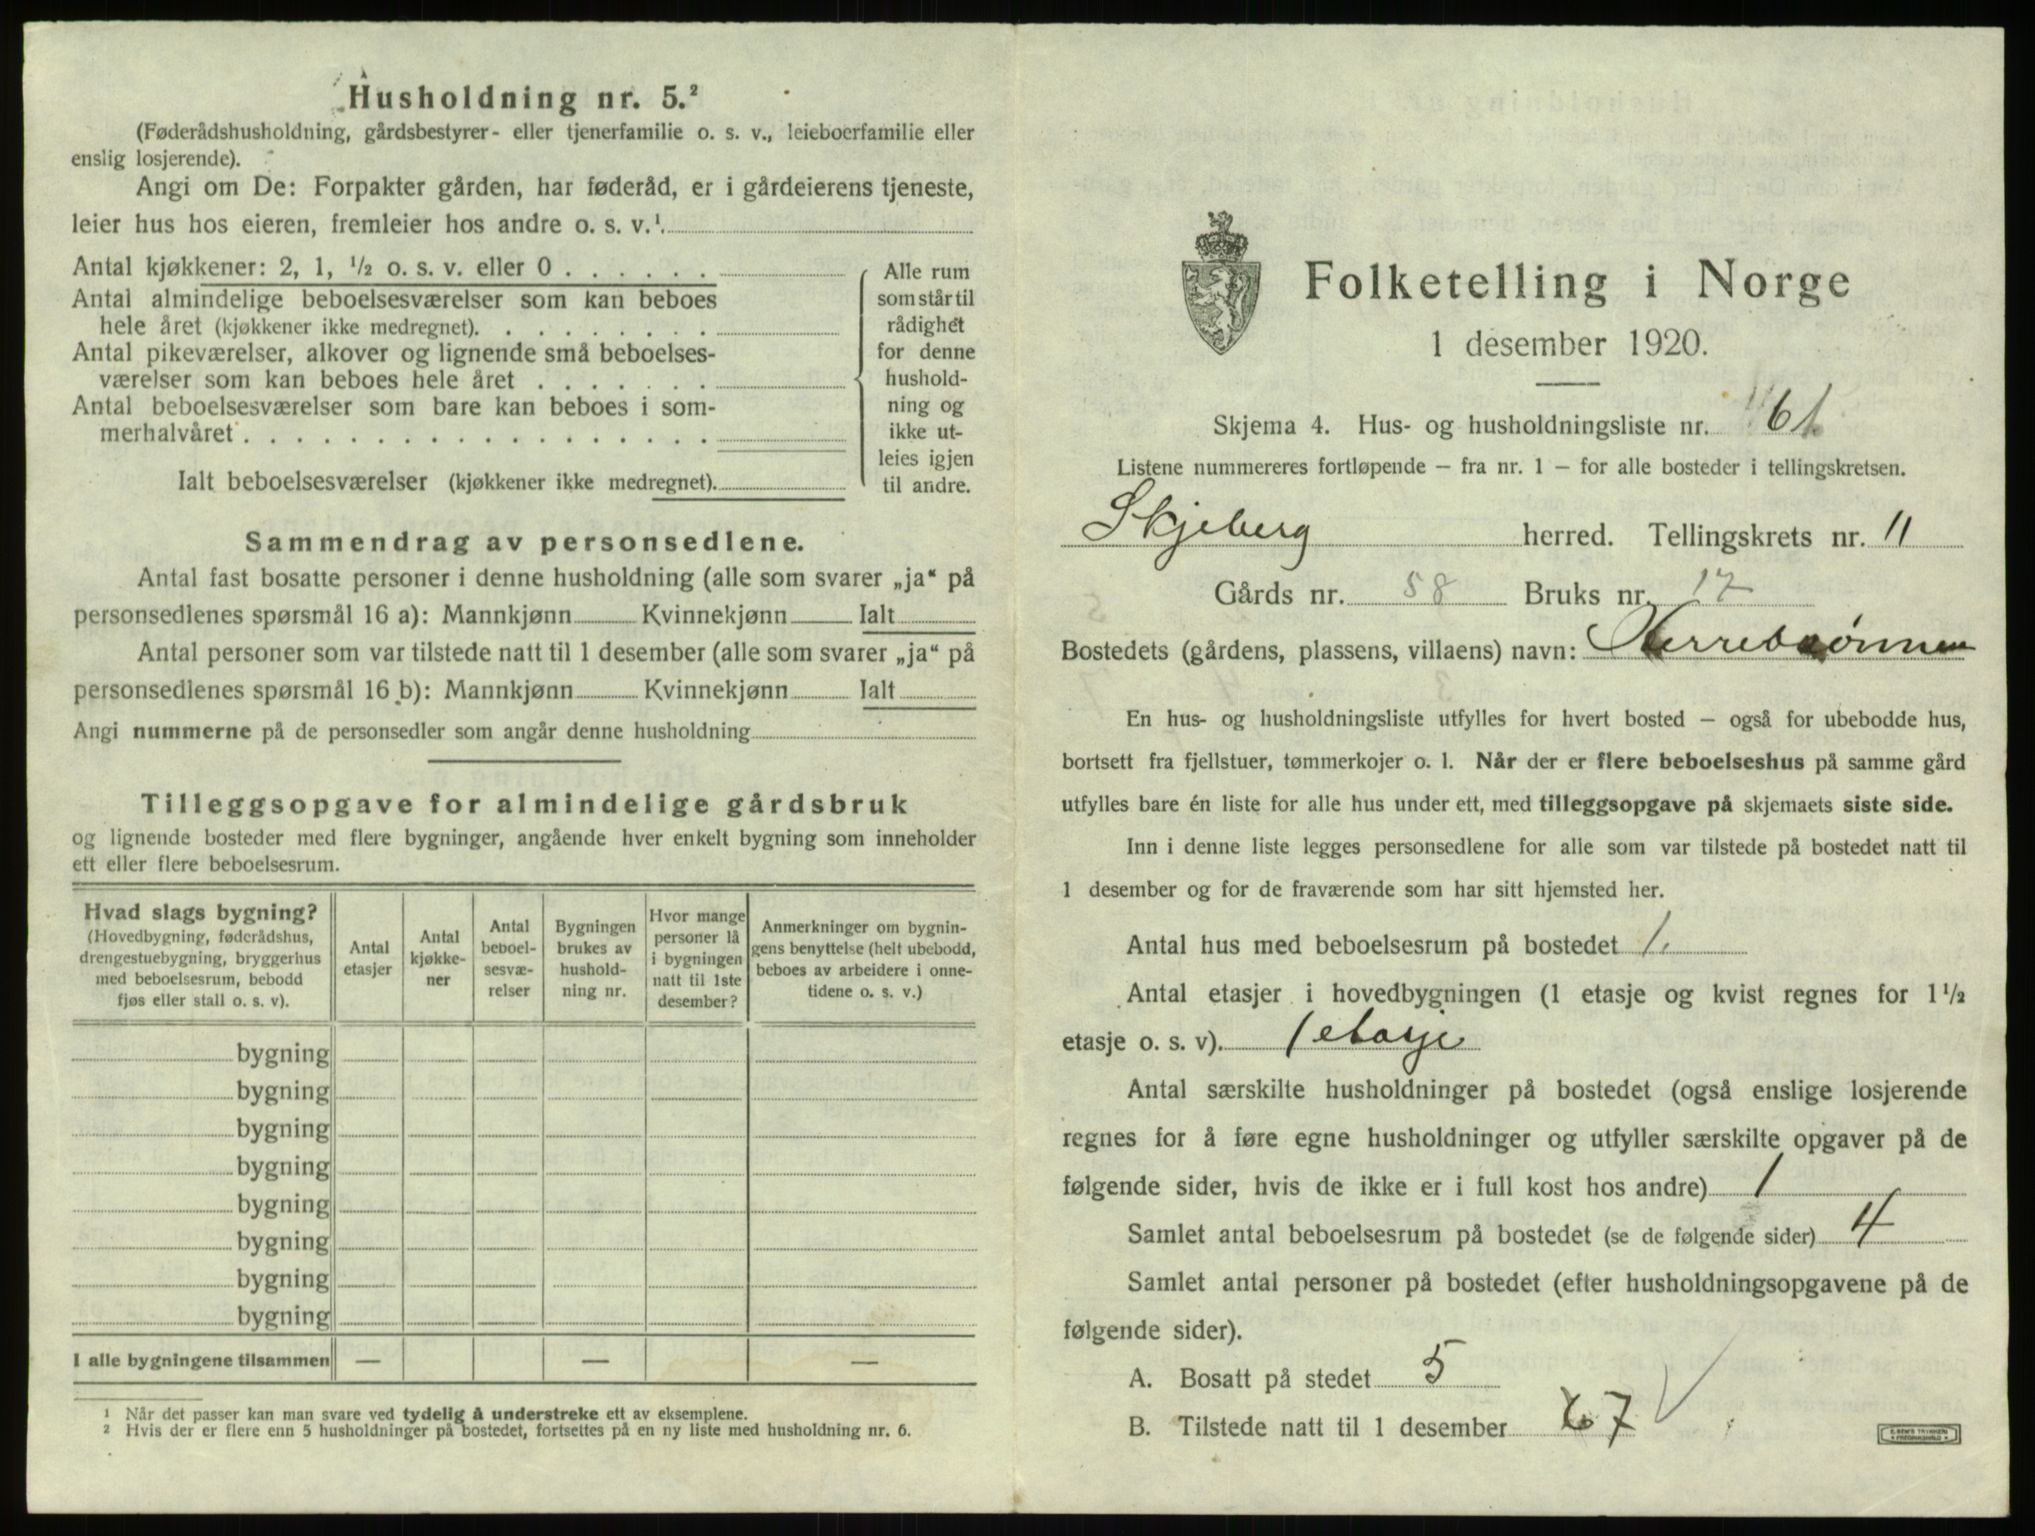 Husholdning nr. 5.²
(Føderådshusholdning, gårdsbestyrer- eller tjenerfamilie o. s. v., leieboerfamilie eller
enslig losjerende).
Angi om De: Forpakter gården, har føderåd, er i gårdeierens tjeneste,
leier hus hos eieren, fremleier hos andre o. s. v.¹
Antal kjøkkener: 2, 1, ½ o. s. v. eller 0 . . . . . .
Antal almindelige beboelsesværelser som kan beboes
hele året (kjøkkener ikke medregnet). . . . . . . . .
Antal pikeværelser, alkover og lignende små beboelses-
værelser som kan beboes hele året . . . . . . .
Antal beboelsesværelser som bare kan beboes i som-
merhalvåret . . . . . . . . . . . . . . . . . .
Ialt beboelsesværelser (kjøkkener ikke medregnet).
Alle rum
som står til
rådighet
for denne
hushold-
ning og
ikke ut-
leies igjen
til andre.
Sammendrag av personsedlene.
Antal fast bosatte personer i denne husholdning (alle som svarer „ja“ på
personsedlenes spørsmål 16 a): Mannkjønn Kvinnekjønn Ialt
Antal personer som var tilstede natt til 1 desember (alle som svarer „ja“ på
personsedlenes spørsmål 16 b): Mannkjønn Kvinnekjønn Ialt
Angi nummerne på de personsedler som angår denne husholdning
Tilleggsopgave for almindelige gårdsbruk
og lignende bosteder med flere bygninger, angående hver enkelt bygning som inneholder
ett eller flere beboelsesrum.
Hvad slags bygning?
(Hovedbygning, føderådshus,
drengestuebygning, bryggerhus
med beboelsesrum, bebodd
fjøs eller stall o. s. v).
Antal
etasjer
Antal
kjøkke-
ner
Antal
beboel-
sesvæ-
relser
Bygningen
brukes av
hushold-
ning nr.
Hvor mange
personer lå
i bygningen
natt til 1ste
desember?
Anmerkninger om bygnin-
gens benyttelse (helt ubebodd,
beboes av arbeidere i onne-
tidene o. s. v.)
bygning
bygning
bygning
bygning
bygning
bygning
bygning
bygning
I alle bygningene tilsammen — — —
¹ Når det passer kan man svare ved tydelig å understreke ett av eksemplene.
² Hvis der er flere enn 5 husholdninger på bostedet, fortsettes på en ny liste med husholdning nr. 6.
Folketelling i Norge
1 desember 1920.
Skjema 4. Hus- og husholdningsliste nr. 61
Listene nummereres fortløpende — fra nr. 1 — for alle bosteder i tellingskretsen.
Skjeberg herred. Tellingskrets nr. 11
Gårds nr. 58 Bruks nr. 17
Bostedets (gårdens, plassens, villaens) navn:
En hus- og husholdningsliste utfylles for hvert bosted — også for ubebodde hus,
bortsett fra fjellstuer, tømmerkojer o. l. Når der er flere beboelseshus på samme gård
utfylles bare én liste for alle hus under ett, med tilleggsopgave på skjemaets siste side.
Inn i denne liste legges personsedlene for alle som var tilstede på bostedet natt til
1 desember og for de fraværende som har sitt hjemsted her.
Antal hus med beboelsesrum på bostedet 1.
Antal etasjer i hovedbygningen (1 etasje og kvist regnes for 1½
etasje o. s. v). 1 etasje
Antal særskilte husholdninger på bostedet (også enslige losjerende
regnes for å føre egne husholdninger og utfyller særskilte opgaver på de
følgende sider, hvis de ikke er i full kost hos andre) 1
Samlet antal beboelsesrum på bostedet (se de følgende sider) 4
Samlet antal personer på bostedet (efter husholdningsopgavene på de
følgende sider).
A. Bosatt på stedet 5
B. Tilstede natt til 1 desember 7